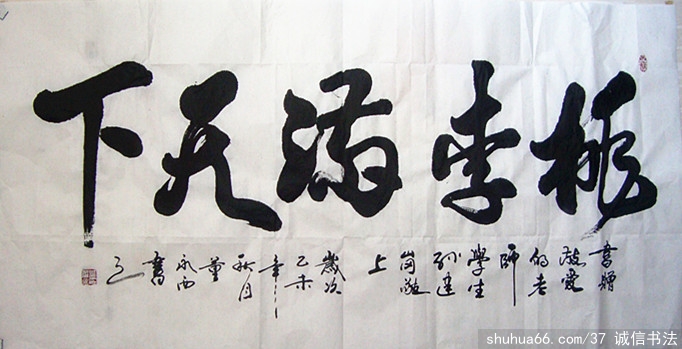 桃李满天下
書贈
敬愛
的老
師
學生
孙建
岗敬
上
歲次
乙未
年
秋月
董
永西
書
shuhua66.com/37 诚信书法